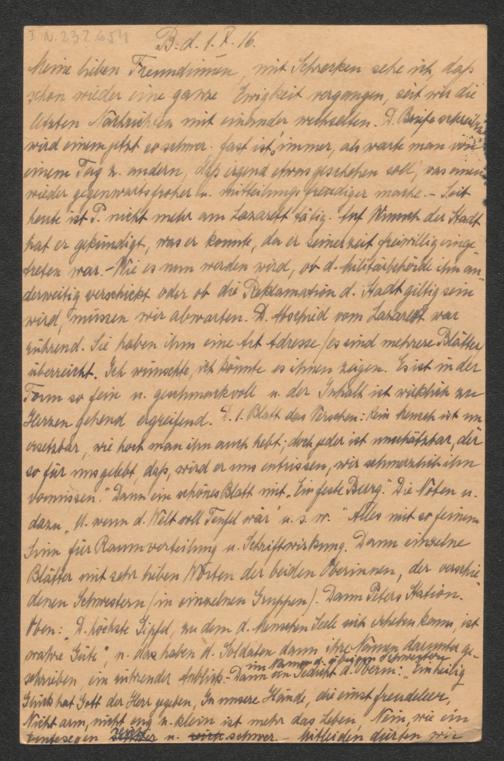 I.N. 232.654
B. d. 1. X. 16.
Meine lieben Freundinnen, mit Schrecken sehe ich, daß
schon wieder eine ganze Ewigkeit vergangen, seit wir die
letzten Nachrichten mit einander wechselten. D. Briefe schreiben
wird einem jetzt so schwer. fast ist's immer, als warte man von
einem Tag z. andern, daß irgend etwas geschehen soll, was einen
wieder gegenwartsfroher u. mitteilungsfreudiger mache. – Seit
heute ist P. nicht mehr am Lazarett tätig. Auf Wunsch der Stadt
hat er gekündigt, was er konnte, da er seinerzeit freiwillig einge-
treten war. – Wie es nun werden wird, ob d. Militärbehörde ihn an-
derweitig verschickt oder ob die Reklamation d. Stadt giltig sein
wird, müssen wir abwarten. D. Abschied vom Lazarett war
rührend. Sie haben ihm eine Art Adresse (es sind mehrere Blätter)
überreicht. Ich wünschte, ich könnte es ihnen zeigen. Es ist in der
Form so fein u. geschmackvoll u. der Inhalt ist wirklich zu
Herzen gehend ergreifend. A. 1. Blatt das Verschen: "Kein Mensch ist un-
ersetzbar, wie hoch man ihn auch hebt, doch jeder ist unschätzbar, der
so für uns gelebt, daß, wird er uns entrissen, wir schmerzlich ihn
vermissen." Dann ein schönes Blatt mit "Ein feste Burg". Die Noten u.
dazu "U. wenn d. Welt voll Teufel wär" u. s. w." Alles mit so feinem
Sinn für Raumverteilung u. Schriftwirkung. Dann einzelne
Blätter mit sehr lieben Worten der beiden Oberinnen, der verschie-
denen Schwestern (in einzelnen Gruppen). Dann Peters Station.
Oben: "D. höchste Gipfel, zu dem d. Menschen Seele sich erheben kann, ist
wahre Güte", u. das haben d. Soldaten dann ihre Namen darunter ge-
schrieben ein rührender Anblick. – Dann ein Gedicht d. Oberin:
im Namen d. übrigen Schwestern
"Einheilig
Glück hat Gott der Herr gegeben, In unsere Hände, die einst freudeleer,
Nicht arm, nicht eng u. klein ist mehr das Leben, Nein, wie ein
u. schwer – Mitleiden dürfen wir